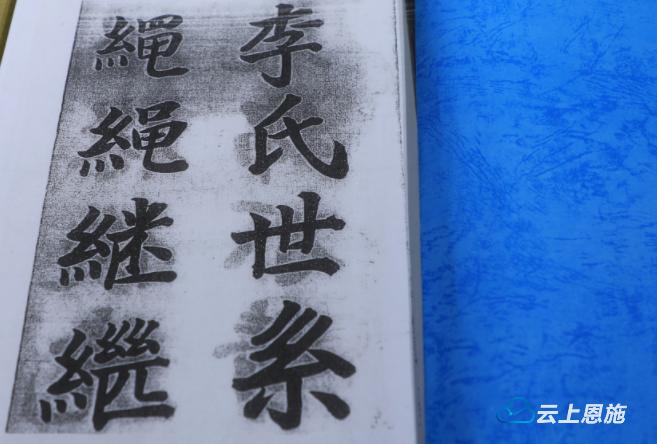 李氏世系
繩繩継繼
云上恩施